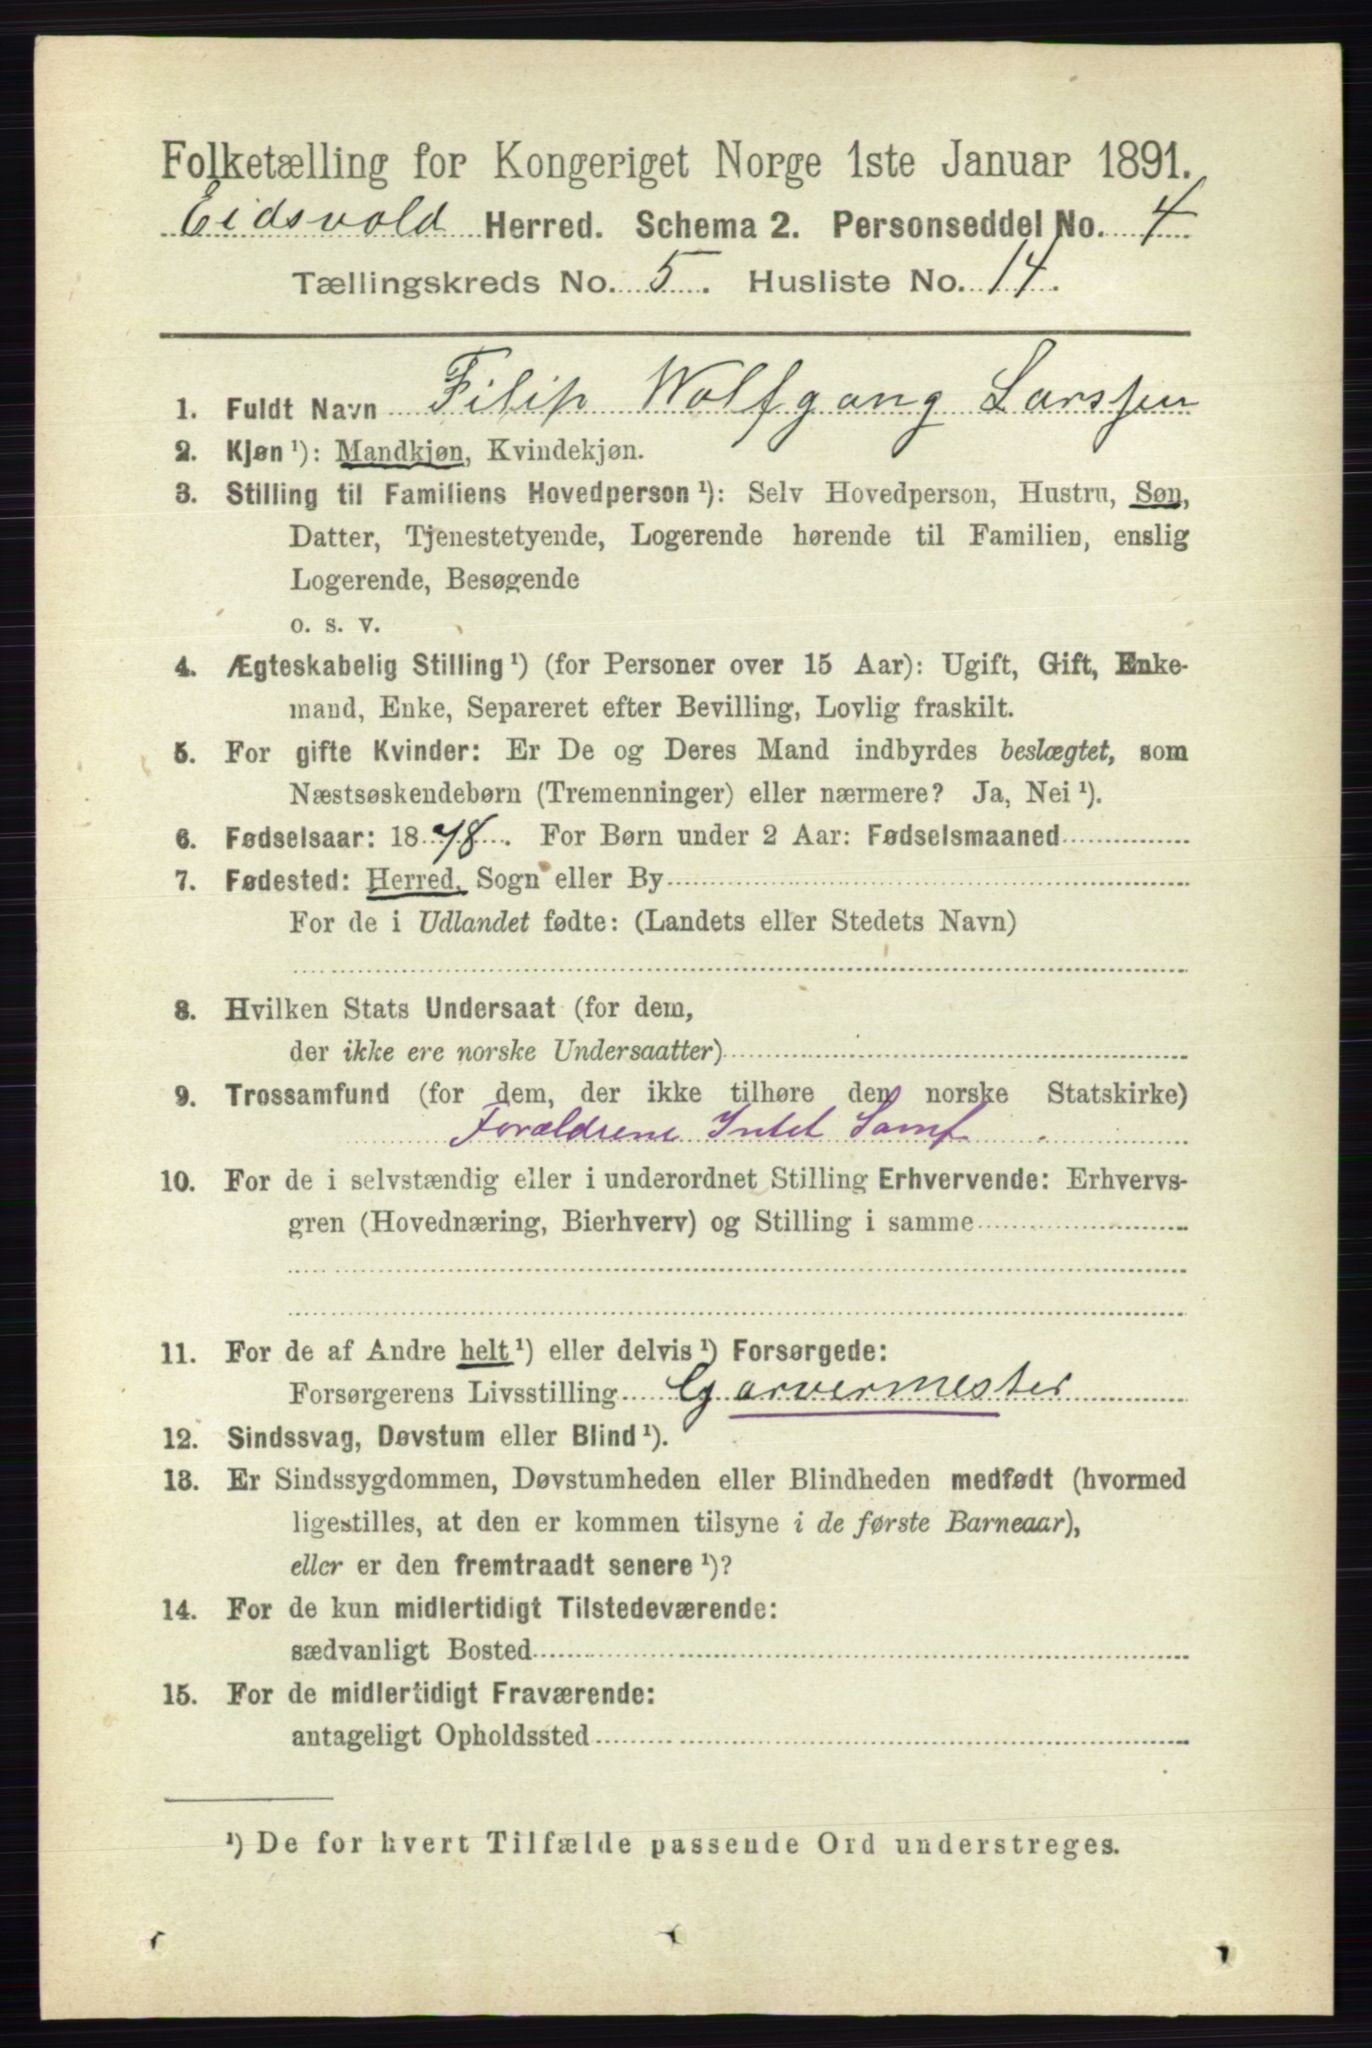 Folketælling for Kongeriget Norge 1ste Januar 1891.
Eidsvold Herred. Schema 2. Personseddel No. 4
Tællingskreds No. 5. Husliste No. 14.
1. Fuldt Navn Filip Wolfgang Larssen
2. Kjøn ¹): Mandkjøn, Kvindekjøn.
3. Stilling til Familiens Hovedperson ¹): Selv Hovedperson, Hustru, Søn,
Datter, Tjenestetyende, Logerende hørende til Familien, enslig
Logerende, Besøgende
o. s. v.
4. Ægteskabelig Stilling ¹) (for Personer over 15 Aar): Ugift, Gift, Enke-
mand, Enke, Separeret efter Bevilling, Lovlig fraskilt.
5. For gifte Kvinder: Er De og Deres Mand indbyrdes beslægtet, som
Næstsøskendebørn (Tremenninger) eller nærmere? Ja, Nei ¹).
6. Fødselsaar: 1878. For Børn under 2 Aar: Fødselsmaaned
7. Fødested: Herred, Sogn eller By
For de i Udlandet fødte: (Landets eller Stedets Navn)
8. Hvilken Stats Undersaat (for dem,
der ikke ere norske Undersaatter)
9. Trossamfund (for dem, der ikke tilhøre den norske Statskirke)
Forældrene Intet Samf.
10. For de i selvstændig eller i underordnet Stilling Erhvervende: Erhvervs-
gren (Hovednæring, Bierhverv) og Stilling i samme
11. For de af Andre helt ¹) eller delvis ¹) Forsørgede:
Forsørgerens Livsstilling Garvermester
12. Sindssvag, Døvstum eller Blind ¹).
13. Er Sindssygdommen, Døvstumheden eller Blindheden medfødt (hvormed
ligestilles, at den er kommen tilsyne i de første Barneaar),
eller er den fremtraadt senere ¹)?
14. For de kun midlertidigt Tilstedeværende:
sædvanligt Bosted
15. For de midlertidigt Fraværende:
antageligt Opholdssted
¹) De for hvert Tilfælde passende Ord understreges.